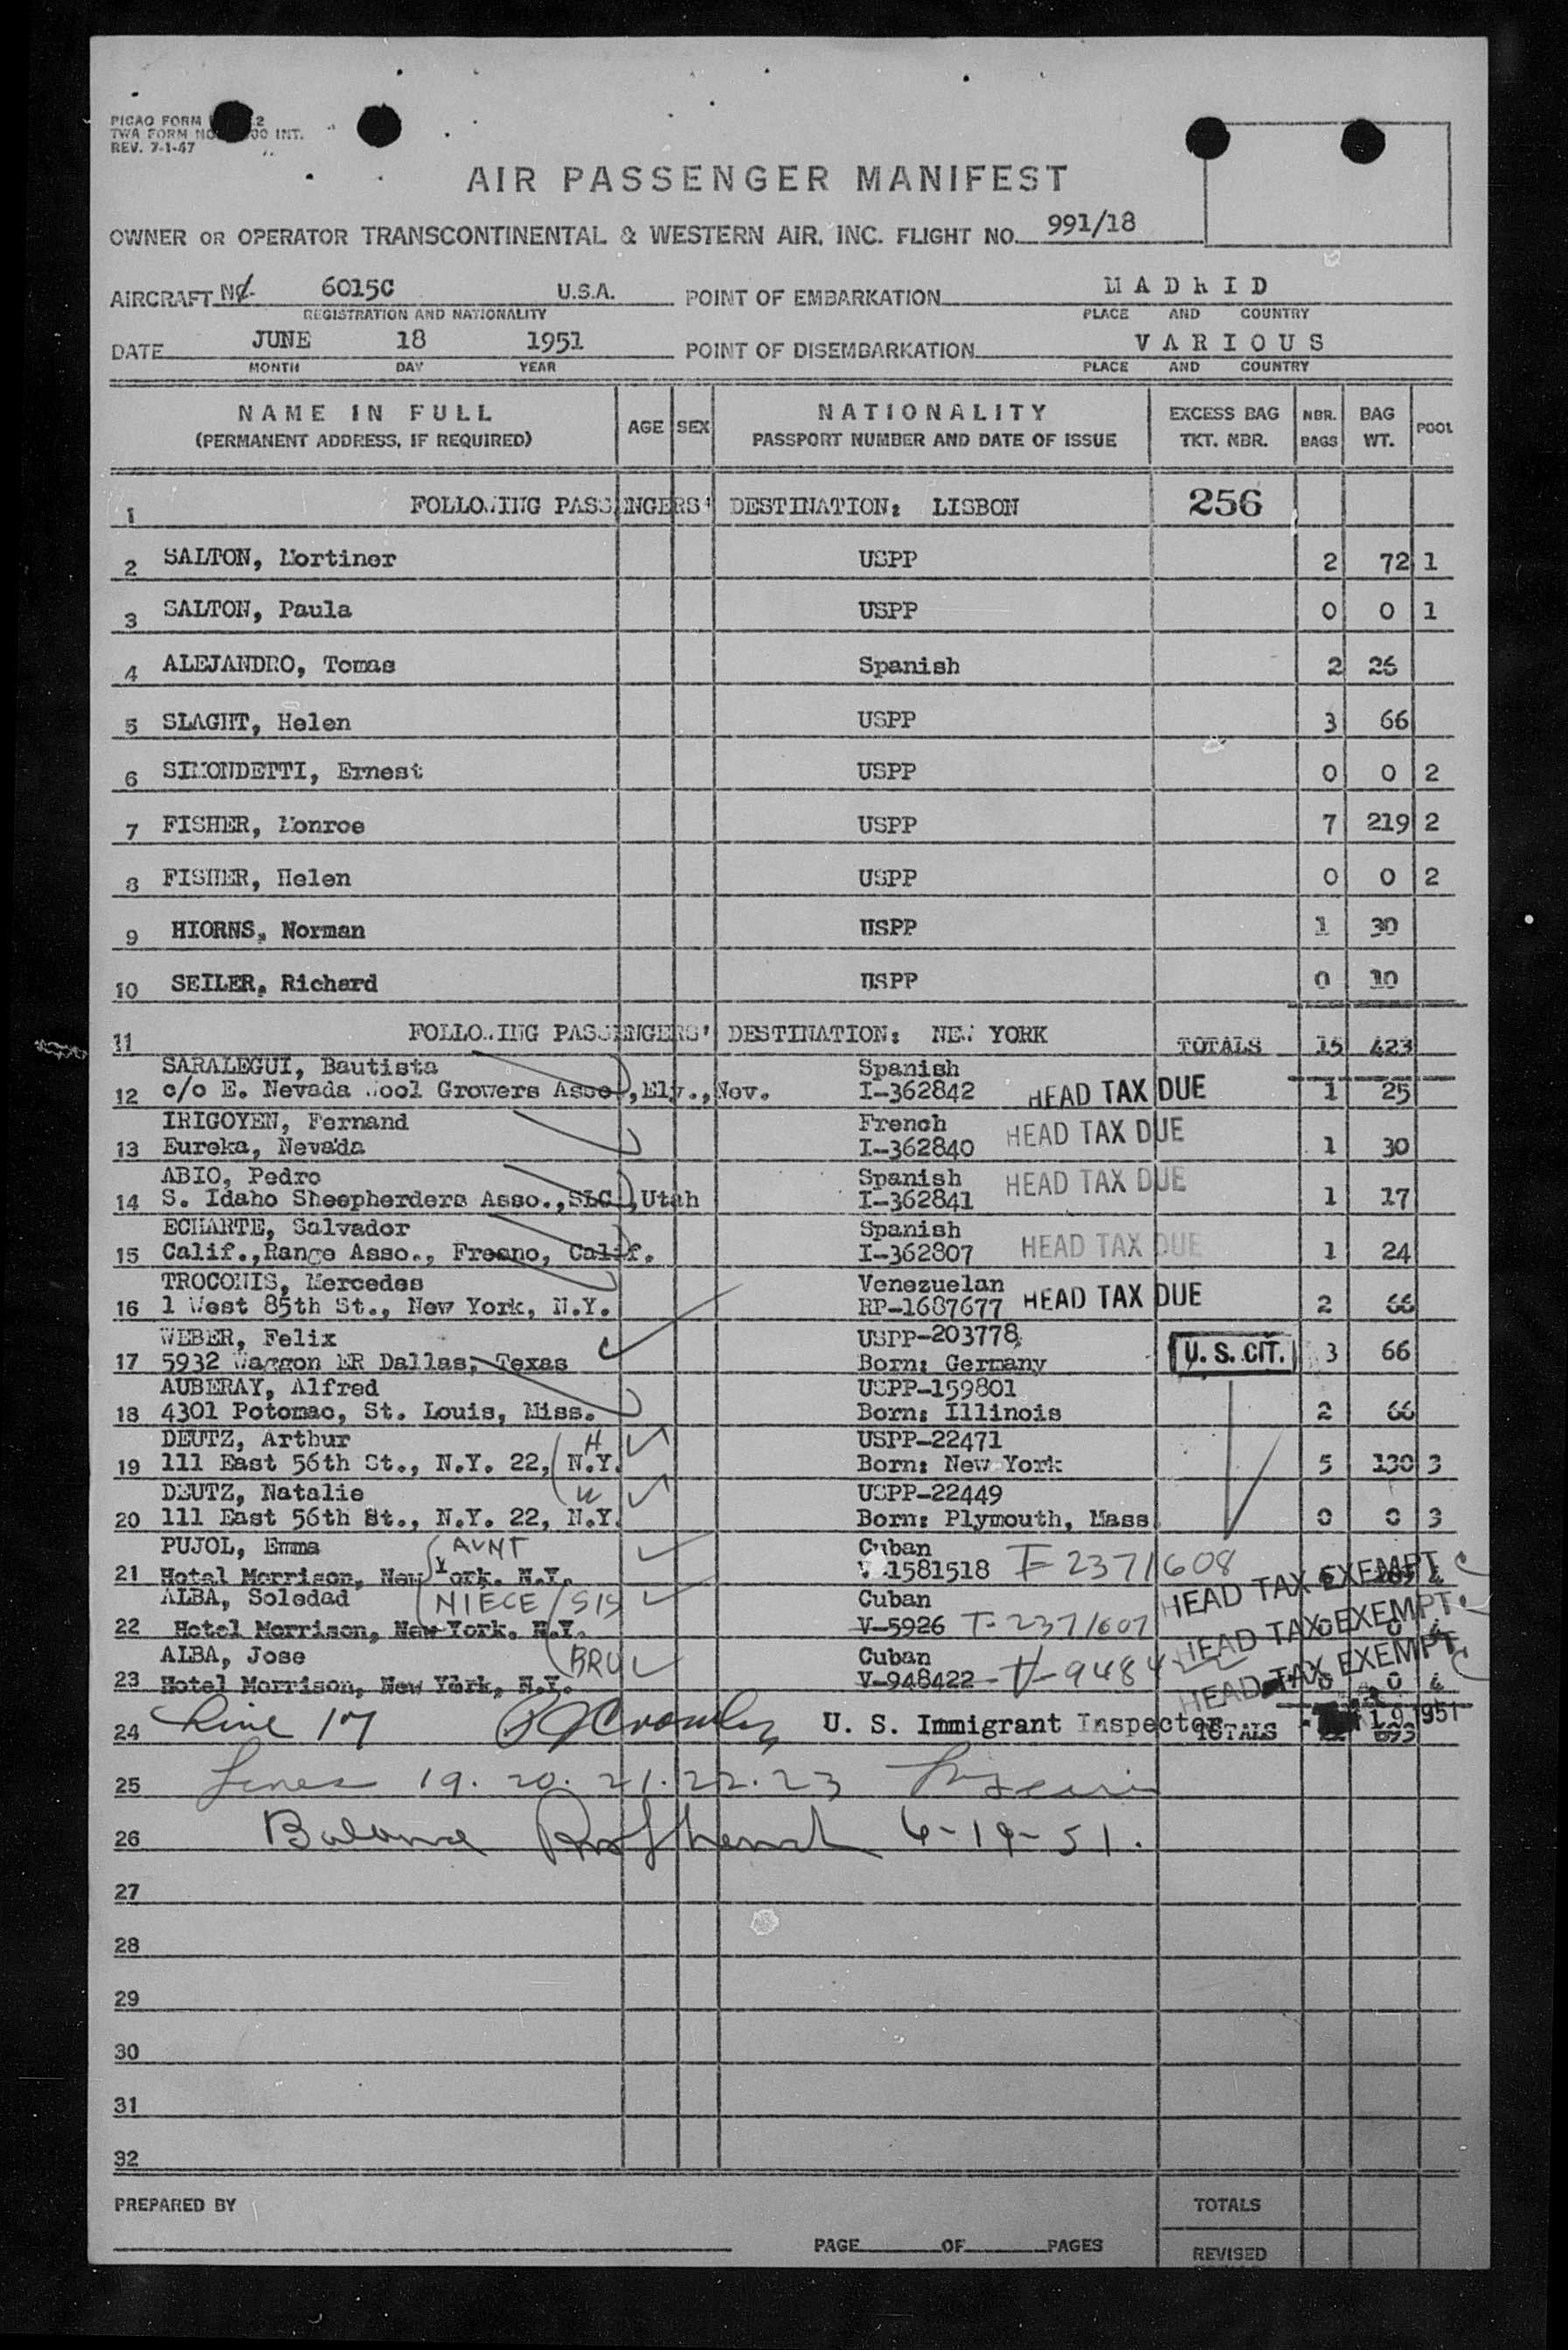 PICAO FORM 2
TWA FORM NO 00 INT.
REV. 7-1-47
AIR PASSENGER MANIFEST
OWNER OR OPERATOR TRANSCONTINENTAL & WESTERN AIR, INC. FLIGHT NO. 991/18
AIRCRAFT NC 6015C U.S.A. POINT OF EMBARKATION MADRID
REGISTRATION AND NATIONALITY PLACE AND COUNTRY
DATE JUNE 18 1951 POINT OF DISEMBARKATION VARIOUS
MONTH DAY YEAR PLACE AND COUNTRY
NAME IN FULL AGE SEX NATIONALITY EXCESS BAG NBR. BAG POOL
(PERMANENT ADDRESS, IF REQUIRED) PASSPORT NUMBER AND DATE OF ISSUE TKT. NBR. BAGS WT.
1 FOLLOWING PASSENGERS' DESTINATION: LISBON 256
2 SALTON, Mortimer USPP 2 72 1
3 SALTON, Paula USPP 0 0 1
4 ALEJANDRO, Tomas Spanish 2 26
5 SLAGHT, Helen USPP 3 66
6 SIMONDETTI, Ernest USPP 0 0 2
7 FISHER, Monroe USPP 7 219 2
8 FISHER, Helen USPP 0 0 2
9 HIORNS, Norman USPP 1 30
10 SEILER, Richard USPP 0 10
11 FOLLOWING PASSENGERS' DESTINATION: NEW YORK TOTALS 15 423
SARALEGUI, Bautista Spanish
12 c/o E. Nevada Wool Growers Asso., Ely., Nev. I-362842 HEAD TAX DUE 1 25
IRIGOYEN, Fernand French
13 Eureka, Nevada I-362840 HEAD TAX DUE 1 30
ABIO, Pedro Spanish
14 S. Idaho Sheepherders Asso., SLC., Utah I-362841 HEAD TAX DUE 1 17
ECHARTE, Salvador Spanish
15 Calif., Range Asso., Fresno, Calif. I-362807 HEAD TAX DUE 1 24
TROCONIS, Mercedes Venezuelan
16 1 West 85th St., New York, N.Y. RP-1687677 HEAD TAX DUE 2 66
WEBER, Felix USPP-203778
17 5932 Waggon ER Dallas, Texas Born: Germany U. S. CIT. 3 66
AUBERAY, Alfred USPP-159801
18 4301 Potomac, St. Louis, Miss. Born: Illinois 2 66
DEUTZ, Arthur H USPP-22471
19 111 East 56th St., N.Y. 22, N.Y. Born: New York 5 130 3
DEUTZ, Natalie W USPP-22449
20 111 East 56th St., N.Y. 22, N.Y. Born: Plymouth, Mass 0 0 3
PUJOL, Emma AUNT Cuban
21 Hotel Morrison, New York. N.Y. V-1581518 T-2371608 HEAD TAX EXEMPT
ALBA, Soledad NIECE SIS Cuban
22 Hotel Morrison, New York. N.Y. V-5926 T-2371607 HEAD TAX EXEMPT 0 0 4
ALBA, Jose BRO Cuban
23 Hotel Morrison, New York, N.Y. V-948422 V-948422 HEAD TAX EXEMPT 0 0 4
24 Line 17 U. S. Immigrant Inspector TOTALS 19 1951
25 Lines 19. 20. 21. 22. 23
26 Balance 6-19-51.
27
28
29
30
31
32
PREPARED BY TOTALS
PAGE OF PAGES REVISED